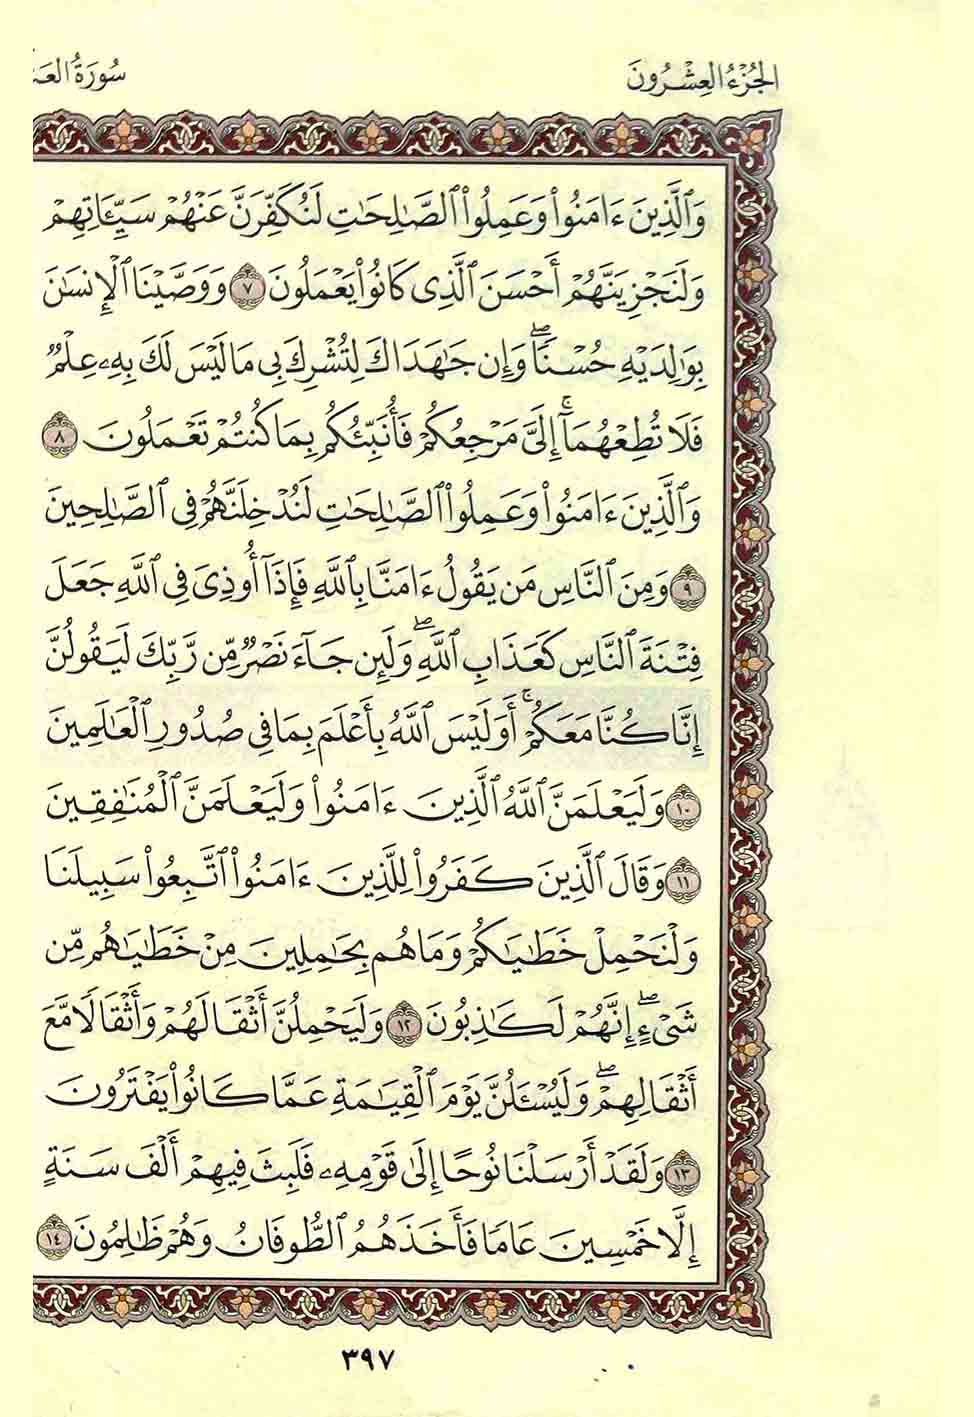 الجُزْءُ العِشْرُونَ
سُورَةُ
وَٱلَّذِينَ ءَامَنُوا۟ وَعَمِلُوا۟ ٱلصَّـٰلِحَـٰتِ لَنُكَفِّرَنَّ عَنْهُمْ سَيِّـَٔاتِهِمْ
وَلَنَجْزِيَنَّهُمْ أَحْسَنَ ٱلَّذِى كَانُوا۟ يَعْمَلُونَ ٧ وَوَصَّيْنَا ٱلْإِنسَـٰنَ
بِوَٰلِدَيْهِ حُسْنًا ۖ وَإِن جَـٰهَدَاكَ لِتُشْرِكَ بِى مَا لَيْسَ لَكَ بِهِۦ عِلْمٌ
فَلَا تُطِعْهُمَآ ۚ إِلَىَّ مَرْجِعُكُمْ فَأُنَبِّئُكُم بِمَا كُنتُمْ تَعْمَلُونَ ٨
وَٱلَّذِينَ ءَامَنُوا۟ وَعَمِلُوا۟ ٱلصَّـٰلِحَـٰتِ لَنُدْخِلَنَّهُمْ فِى ٱلصَّـٰلِحِينَ
٩ وَمِنَ ٱلنَّاسِ مَن يَقُولُ ءَامَنَّا بِٱللَّهِ فَإِذَآ أُوذِىَ فِى ٱللَّهِ جَعَلَ
فِتْنَةَ ٱلنَّاسِ كَعَذَابِ ٱللَّهِ ۖ وَلَئِن جَآءَ نَصْرٌ مِّن رَّبِّكَ لَيَقُولُنَّ
إِنَّا كُنَّا مَعَكُمْ ۚ أَوَلَيْسَ ٱللَّهُ بِأَعْلَمَ بِمَا فِى صُدُورِ ٱلْعَـٰلَمِينَ
١٠ وَلَيَعْلَمَنَّ ٱللَّهُ ٱلَّذِينَ ءَامَنُوا۟ وَلَيَعْلَمَنَّ ٱلْمُنَـٰفِقِينَ
١١ وَقَالَ ٱلَّذِينَ كَفَرُوا۟ لِلَّذِينَ ءَامَنُوا۟ ٱتَّبِعُوا۟ سَبِيلَنَا
وَلْنَحْمِلْ خَطَـٰيَـٰكُمْ وَمَا هُم بِحَـٰمِلِينَ مِنْ خَطَـٰيَـٰهُم مِّن
شَىْءٍ ۖ إِنَّهُمْ لَكَـٰذِبُونَ ١٢ وَلَيَحْمِلُنَّ أَثْقَالَهُمْ وَأَثْقَالًا مَّعَ
أَثْقَالِهِمْ ۖ وَلَيُسْـَٔلُنَّ يَوْمَ ٱلْقِيَـٰمَةِ عَمَّا كَانُوا۟ يَفْتَرُونَ
١٣ وَلَقَدْ أَرْسَلْنَا نُوحًا إِلَىٰ قَوْمِهِۦ فَلَبِثَ فِيهِمْ أَلْفَ سَنَةٍ
إِلَّا خَمْسِينَ عَامًا فَأَخَذَهُمُ ٱلطُّوفَانُ وَهُمْ ظَـٰلِمُونَ ١٤
٣٩٧